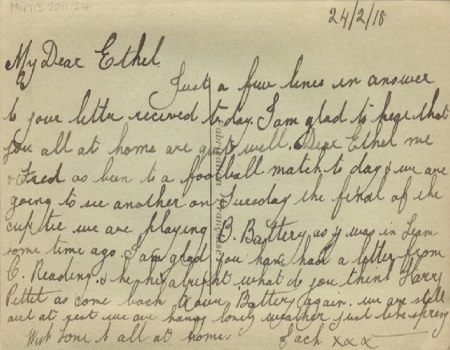 24/2/18
My Dear Ethel
Just a few lines in answer
to your letter recived to day. I am glad to hear that
you all at home are quite well. Dear Ethel me
& Fred as been to a football match to day & we are
going to see another on Tuesday the final of the
cup tie we are playing B. Battery as y was in Team
some time ago. I am glad you have had a letter from
C. Reading. & he his alright what do you think Harry
Pettet as come back to our Battery again. we are still
out at rest we are having lovely weather just like spring
With love to all at home.
Jack xxx